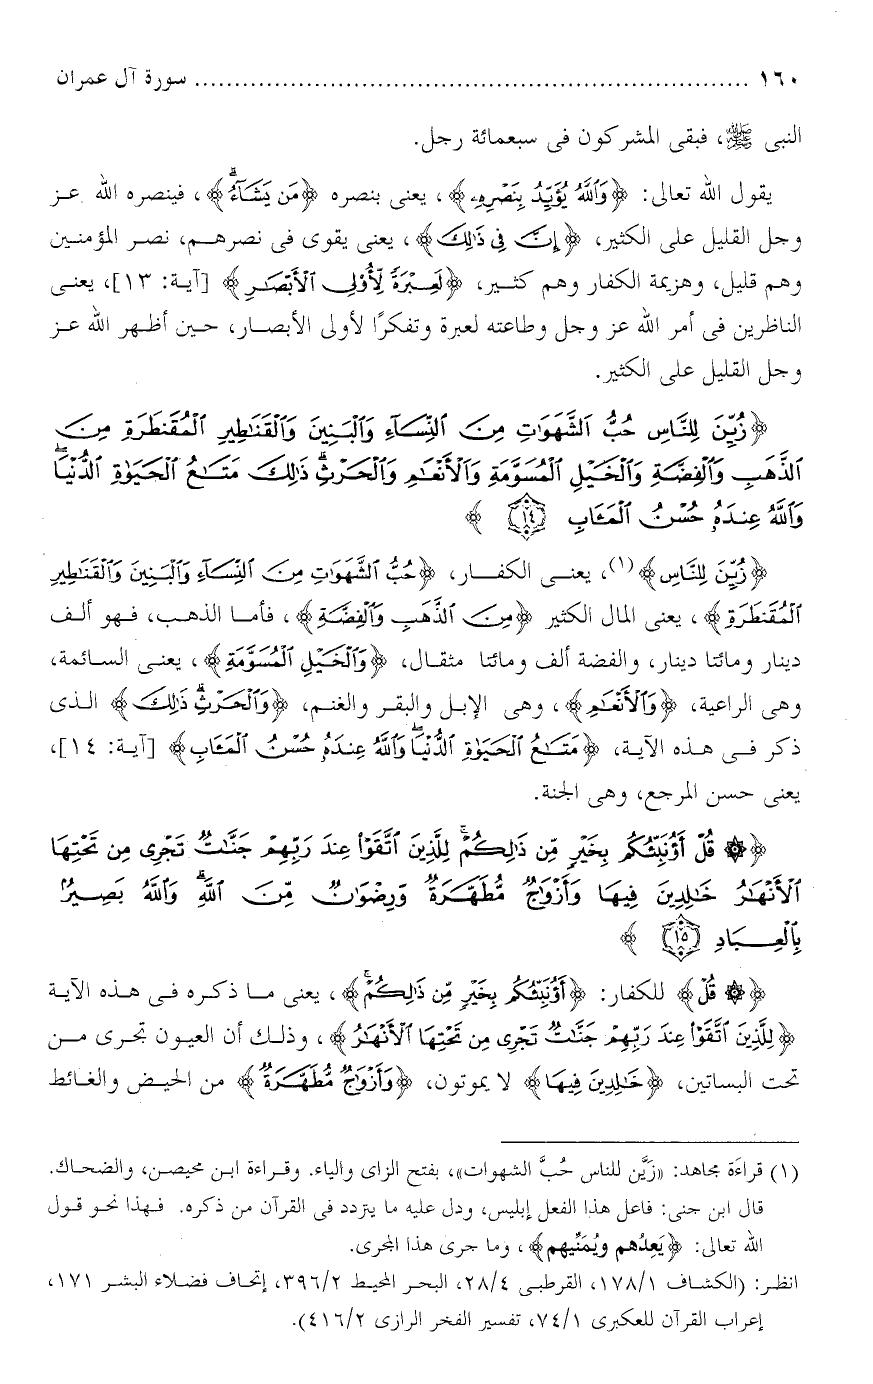 ١٦٠ ........................................................................ سورة آل عمران
النبى ﷺ، فبقى المشركون فى سبعمائة رجل.
يقول الله تعالى: ﴿وَاللَّهُ يُؤَيِّدُ بِنَصْرِهِ﴾، يعنى بنصره ﴿مَن يَشَاءُ﴾، فينصره الله عز
وجل القليل على الكثير، ﴿إِنَّ فِي ذَٰلِكَ﴾، يعنى يقوى فى نصرهم، نصر المؤمنين
وهم قليل، وهزيمة الكفار وهم كثير، ﴿لَعِبْرَةً لِّأُولِي الْأَبْصَارِ﴾ [آية: ١٣]، يعنى
الناظرين فى أمر الله عز وجل وطاعته لعبرة وتفكرًا لأولى الأبصار، حين أظهر الله عز
وجل القليل على الكثير.
﴿زُيِّنَ لِلنَّاسِ حُبُّ الشَّهَوَاتِ مِنَ النِّسَاءِ وَالْبَنِينَ وَالْقَنَاطِيرِ الْمُقَنطَرَةِ مِنَ
الذَّهَبِ وَالْفِضَّةِ وَالْخَيْلِ الْمُسَوَّمَةِ وَالْأَنْعَامِ وَالْحَرْثِ ۗ ذَٰلِكَ مَتَاعُ الْحَيَاةِ الدُّنْيَا ۖ
وَاللَّهُ عِندَهُ حُسْنُ الْمَآبِ ١٤ ﴾
﴿زُيِّنَ لِلنَّاسِ﴾(١)، يعنى الكفار، ﴿حُبُّ الشَّهَوَاتِ مِنَ النِّسَاءِ وَالْبَنِينَ وَالْقَنَاطِيرِ
الْمُقَنطَرَةِ﴾، يعنى المال الكثير ﴿مِنَ الذَّهَبِ وَالْفِضَّةِ﴾، فأما الذهب، فهو ألف
دينار ومائتا دينار، والفضة ألف ومائتا مثقال، ﴿وَالْخَيْلِ الْمُسَوَّمَةِ﴾، يعنى السائمة،
وهى الراعية، ﴿وَالْأَنْعَامِ﴾، وهى الإبل والبقر والغنم، ﴿وَالْحَرْثِ ۗ ذَٰلِكَ﴾ الذى
ذكر فى هذه الآية، ﴿مَتَاعُ الْحَيَاةِ الدُّنْيَا ۖ وَاللَّهُ عِندَهُ حُسْنُ الْمَآبِ﴾ [آية: ١٤]،
يعنى حسن المرجع، وهى الجنة.
﴿۞ قُلْ أَؤُنَبِّئُكُم بِخَيْرٍ مِّن ذَٰلِكُمْ ۚ لِلَّذِينَ اتَّقَوْا عِندَ رَبِّهِمْ جَنَّاتٌ تَجْرِي مِن تَحْتِهَا
الْأَنْهَارُ خَالِدِينَ فِيهَا وَأَزْوَاجٌ مُّطَهَّرَةٌ وَرِضْوَانٌ مِّنَ اللَّهِ ۗ وَاللَّهُ بَصِيرٌ
بِالْعِبَادِ ١٥ ﴾
﴿۞ قُلْ﴾ للكفار: ﴿أَؤُنَبِّئُكُم بِخَيْرٍ مِّن ذَٰلِكُمْ ۚ﴾، يعنى ما ذكره فى هذه الآية
﴿لِلَّذِينَ اتَّقَوْا عِندَ رَبِّهِمْ جَنَّاتٌ تَجْرِي مِن تَحْتِهَا الْأَنْهَارُ﴾، وذلك أن العيون تجرى من
تحت البساتين، ﴿خَالِدِينَ فِيهَا﴾ لا يموتون، ﴿وَأَزْوَاجٌ مُّطَهَّرَةٌ﴾ من الحيض والغائط
(١) قراءة مجاهد: «زَيَّن للناس حُبَّ الشهوات»، بفتح الزاى والياء. وقراءة ابن محيصن، والضحاك.
قال ابن جنى: فاعل هذا الفعل إبليس، ودل عليه ما يتردد فى القرآن من ذكره. فهذا نحو قول
الله تعالى: ﴿يَعِدُهم ويُمَنِّيهم﴾، وما جرى هذا المجرى.
انظر: (الكشاف ١/١٧٨، القرطبى ٢٨/٤، البحر المحيط ٣٩٦/٢، إتحاف فضلاء البشر ١٧١،
إعراب القرآن للعكبرى ٧٤/١، تفسير الفخر الرازى ٤١٦/٢).